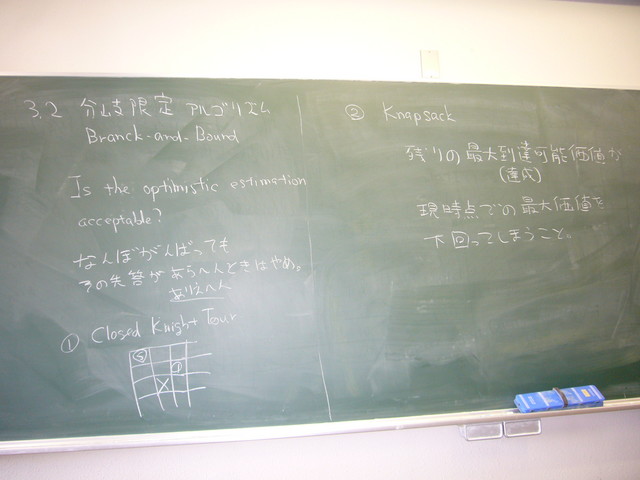 3.2 分岐限定 アルゴリズム
Branck-and-Bound
Is the optimistic estimation
acceptable?
なんぼがんばっても
その先答があらへんときはやめ。
ありえへん
① Closed Knight Tour
⑤
①
② Knapsack
残りの最大到達可能価値が
(達成)
現時点での最大価値を
下回ってしまうこと。